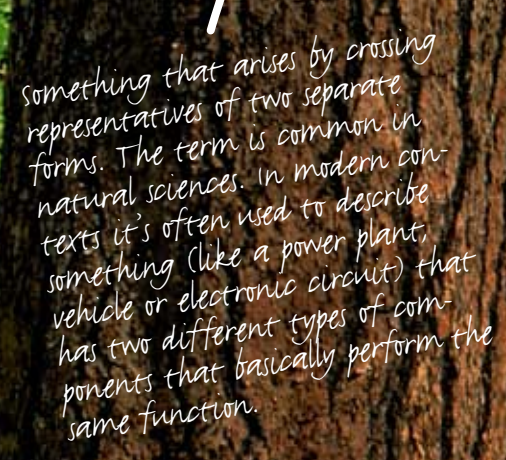 Something that arises by crossing
representatives of two separate
forms. The term is common in
natural sciences. In modern con-
texts it's often used to describe
something (like a power plant,
vehicle or electronic circuit) that
has two different types of com-
ponents that basically perform the
same function.